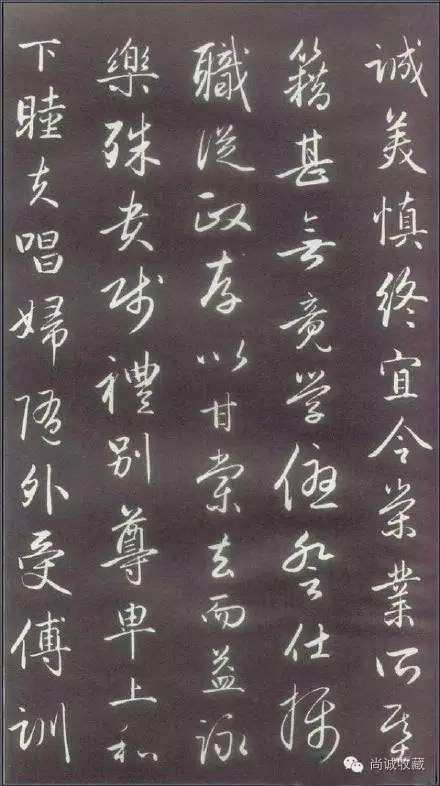 誠美慎終宜令榮業所基
籍甚無竟学優登仕攝
職從政存以甘棠去而益詠
樂殊貴賤禮別尊卑上和
下睦夫唱婦隨外受傅訓
尚诚收藏